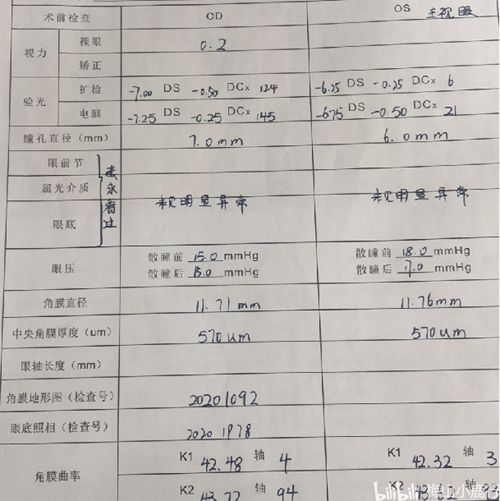 术前检查 OD OS 主视眼
视力 裸眼 0.2
矫正
验光 扩检 -7.00 DS -0.50 DCx 124 -6.25 DS -0.25 DCx 6
电脑 -7.25 DS -0.25 DCx 145 -6.75 DS -0.50 DCx 21
瞳孔直径(mm) 7.0mm 6.0mm
眼前节
屈光介质 未见明显异常 未见明显异常
眼底
眼压 散瞳前 15.0 mmHg 散瞳前 18.0 mmHg
散瞳后 mmHg 散瞳后 17.0 mmHg
角膜直径 11.71mm 11.76mm
中央角膜厚度(um) 570um 570um
眼轴长度(mm)
角膜地形图(检查号) 20201092
眼底照相(检查号) 20201978
角膜曲率 K1 42.48 轴 4 K1 42.32 轴 3
K2 43.72 轴 94 K2 轴
bilibili